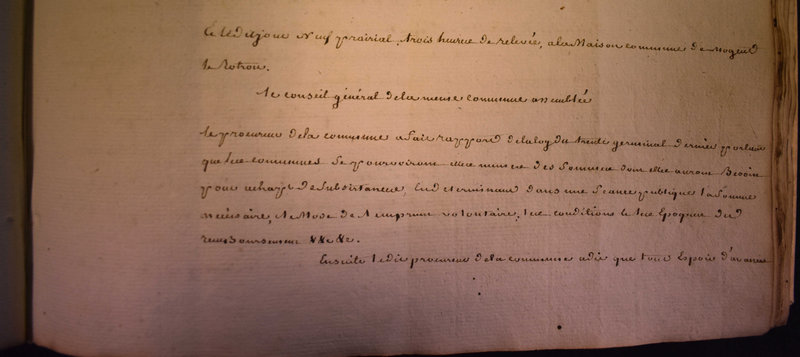 Et ledit jour neuf prairial, trois heures de relevée, a la Maison commune de nogent
le Rotrou.
Le conseil général de la meme commune assemblée
le procureur de la commune a fait rapport de la loy du trente germinal dernier portant
que les communes se pourvoiront elles memes des sommes dont elles auront Besoin
pour achapt de subsistances, En determinant dans une séance publique la somme
nécéssaire, le Mode de l'emprunt volontaire, les conditions et les Epoques du
remboursement &&c &c.
Ensuite ledit procureur de la commune a dit que tout Espoir d'avance